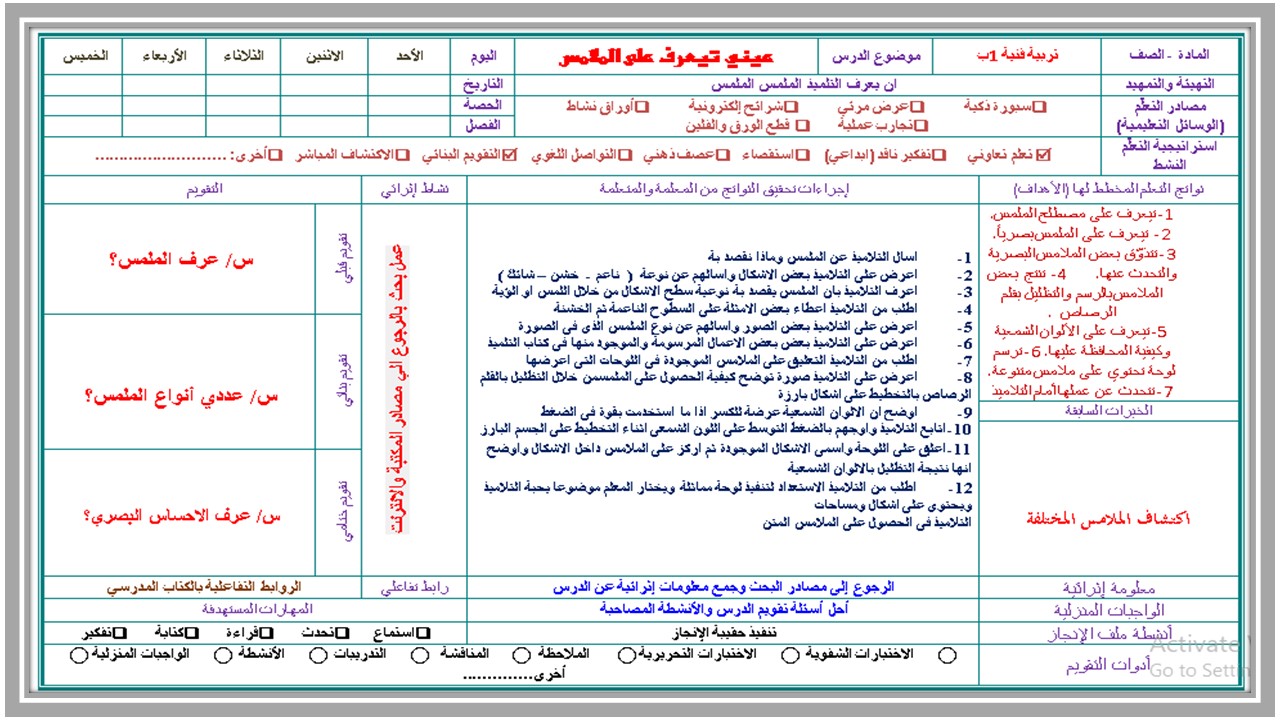 المادة - الصف تربية فنية 1ب موضوع الدرس عيني تتعرف على الملامس اليوم الأحد الاثنين الثلاثاء الأربعاء الخميس
التهيئة والتمهيد ان يعرف التلميذ الملمس الملمس التاريخ
مصادر التعلم (الوسائل التعليمية) ☐سبورة ذكية ☐عرض مرئي ☐شرائح إلكترونية ☐أوراق نشاط الحصة
☐تجارب عملية ☐ قطع الورق والفلين الفصل
استراتيجية التعلم النشط ☑ تعلم تعاوني ☐تفكير ناقد (ابداعي) ☐استقصاء ☐عصف ذهني ☐التواصل اللغوي ☑التقويم البنائي ☐الاكتشاف المباشر ☐أخرى: ............................
نواتج التعلم المخطط لها (الأهداف) إجراءات تحقيق النواتج من المعلمة والمتعلمة نشاط إثرائي التقويم
1-تتعرف على مصطلح الملمس.
2- تتعرف على الملمس بصرياً.
3-تتذوّق بعض الملامس البصرية
والتحدث عنها. 4- تنتج بعض
الملامس بالرسم والتظليل بقلم
الرصاص .
5-تتعرف على الألوان الشمعية
وكيفية المحافظة عليها. 6-ترسم
لوحة تحتوي على ملامس متنوعة.
7-تتحدث عن عملها أمام التلاميذ
الخبرات السابقة
اكتشاف الملامس المختلفة
1- اسال التلاميذ عن الملمس وماذا نقصد بة
2- اعرض على التلاميذ بعض الاشكال واسالهم عن نوعة ( ناعم - خشن – شائك)
3- اعرف التلاميذ بان الملمس يقصد بة نوعية سطح الاشكال من خلال اللمس او الرؤية
4- اطلب من التلاميذ اعطاء بعض الامثلة على السطوح الناعمة ثم الخشنة
5- اعرض على التلاميذ بعض الصور واسالهم عن نوع الملمس الذى فى الصورة
6- اعرض على التلاميذ بعض بعض الاعمال المرسومة والموجود منها فى كتاب التلميذ
7- اطلب من التلاميذ التعليق على الملامس الموجودة فى اللوحات التى اعرضها
8- اعرض على التلاميذ صورة توضح كيفية الحصول على الملمسمن خلال التظليل بالقلم
الرصاص بالتخطيط على اشكال بارزة
9- اوضح ان الالوان الشمعية عرضة للكسر اذا ما استخدمت بقوة فى الضغط
10-اتابع التلاميذ واوجهم بالضغط التوسط على اللون الشمعى اثناء التخطيط على الجسم البارز
11-اعلق على اللوحة واسمى الاشكال الموجودة ثم اركز على الملامس داخل الاشكال واوضح
انها نتيجة التظليل بالالوان الشمعية
12- اطلب من التلاميذ الاستعداد لتنفيذ لوحة مماثلة ويختار المعلم موضوعا يحبة التلاميذ
ويحتوى على اشكال ومساحات
التلاميذ فى الحصول على الملامس المتن
عمل بحث بالرجوع الي مصادر المكتبة والانترنت
تقويم قبلي
س/ عرف الملمس؟
تقويم بنائي
س/ عددي أنواع الملمس؟
تقويم ختامي
س/ عرف الاحساس البصري؟
معلومة إثرائية الرجوع إلى مصادر البحث وجمع معلومات إثرائية عن الدرس رابط تفاعلي الروابط التفاعلية بالكتاب المدرسي
الواجبات المنزلية أحل أسئلة تقويم الدرس والأنشطة المصاحبة المهارات المستهدفة
أنشطة ملف الإنجاز تنفيذ حقيبة الإنجاز ☐استماع ☐تحدث ☐قراءة ☐كتابة ☐تفكير
أدوات التقويم ◯ الاختبارات الشفوية ◯ الاختبارات التحريرية ◯ الملاحظة ◯ المناقشة ◯ التدريبات ◯ الأنشطة ◯ الواجبات المنزلية ◯
أخرى..............
Activate
Go to Settin